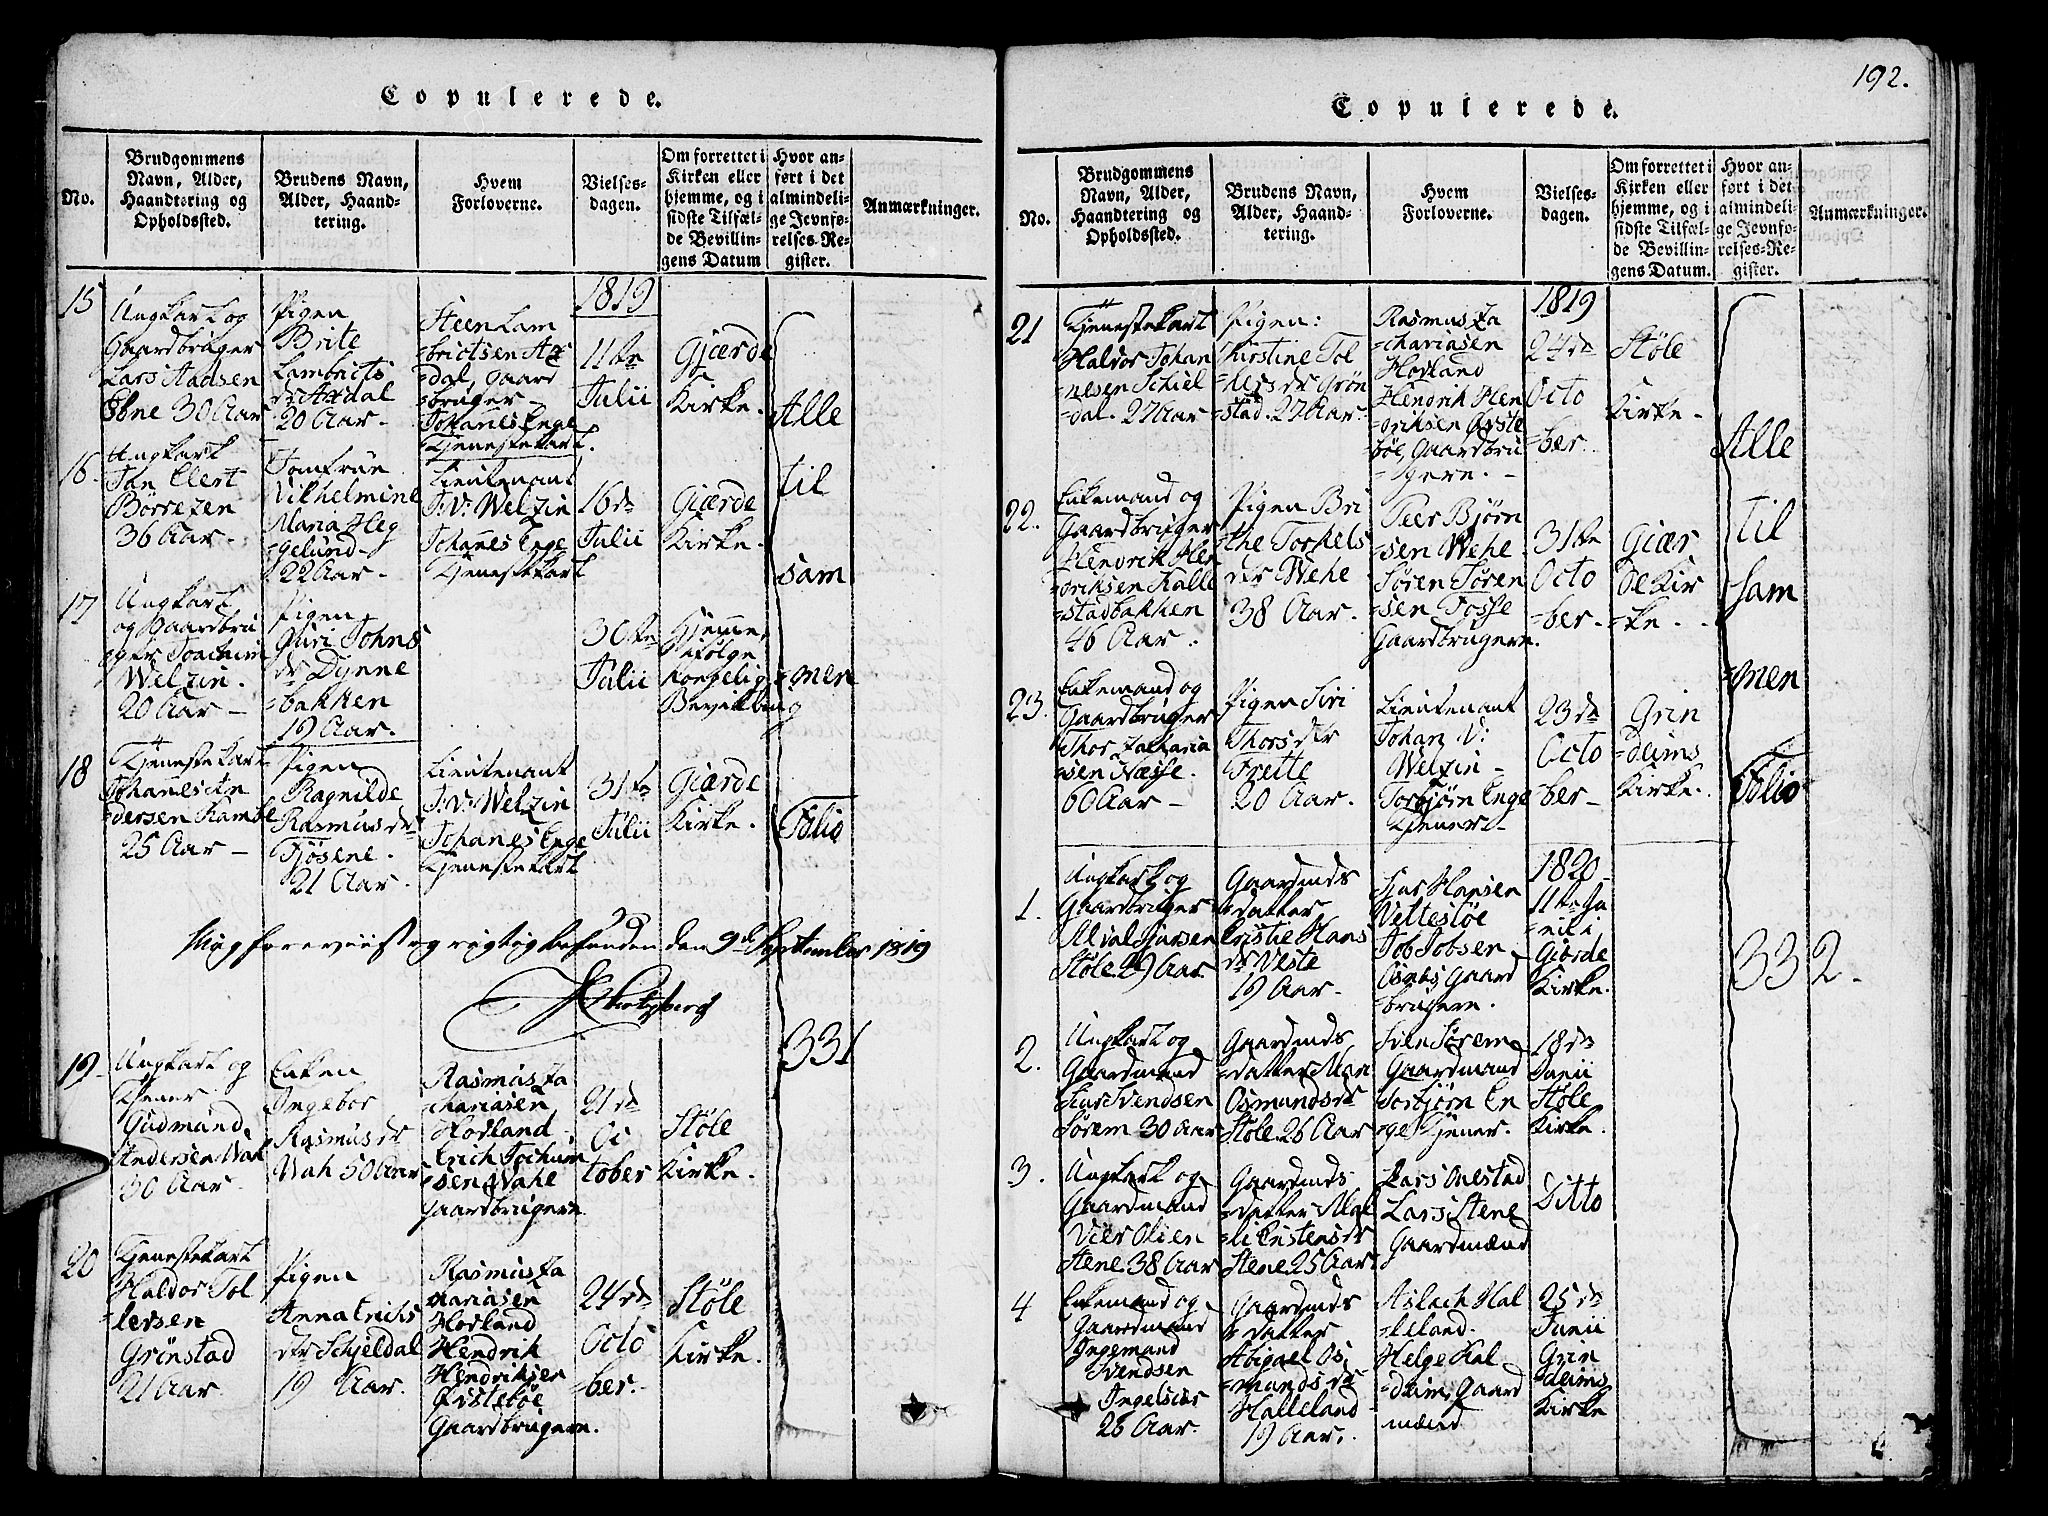 Copulerede.
No.
Brudgommens
Navn, Alder,
Haandtering og
Opholdssted.
Brudens Navn,
Alder, Haand-
tering.
Hvem
Forloverne.
Vielses-
dagen.
Om forrettet i
Kirken eller
hjemme, og i
sidste Tilfæl-
de Bevillin-
gens Datum
Hvor an-
ført i det
almindeli-
ge Jevnfø-
relses-Re-
gister.
Anmærkninger.
15
Ungkarl og
Gaardbruger
Lars Aadsen
Ebne 30 Aar
Pigen
Brite
Lambricts
dr Axdal
20 Aar -
Steen Lam
=brictsen Ax
dal, gaard
=bruger -
Johanes Enge
Tjenestekarl.
1819
11te
Julii
Gjærde
Kirke.
16.
Ungkarl
Jan Elert
Börrezen
36 Aar -
Jomfrue
Vilhelmine
Maria Heg
=gelund -
22 Aar -
Lieutenant
J: V: Welzin
Johanes Enge
Tjenestekarl
16de
Julii
Gjærde
Kirke.
17
Ungkarl
og Gaardbru
ger Joachim
Welzin.
20 Aar -
Pigen
Guri Johns
dr Dynne
=bakken
19 Aar.
30te
Julii
Hjemme,
ifølge
Kongelig
Bevilling
18
Tjenestekarl
Johanes An
dersen Kambe
25 Aar -
Pigen
Ragnilde
Rasmusdr
Tjösene.
21 Aar.
Lieutenant
J: V: Welzin
Johanes Enge
Tjenestekarl
31te
Julii
Gjærde
Kirke.
Alle
til
sam
=men
Folio
331
Mig foreviist og rigtig befunden den 9de September 1819
19
Ungkarl og
Tjener
Gudmund
Andersen Wah
30 Aar.
Enken
Ingebor
Rasmusdr
Wah 50 Aar
Rasmus Za
chariasen
Hodland
Erich Jochum
=sen Wahe
Gaardbrugere
21de
Oc
tober
Støle
Kirke.
20
Tjenestekarl
Haldor Tol
=lersen
Grönstad
21 Aar
Pigen
Anna Erichs
dtr Schjeldal
19 Aar.
Rasmus Za
chariasen
Hodland
Hendrik
Hendriksen
Østebøe
Gaardbrugere.
24de
Octo
=ber.
Støle
Kirke.
192.
Copulerede.
No.
Brudgommens
Navn, Alder,
Haandtering og
Opholdssted.
Brudens Navn,
Alder, Haand-
tering.
Hvem
Forloverne.
Vielses-
dagen.
Om forrettet i
Kirken eller
hjemme, og i
sidste Tilfæl-
de Bevillin-
gens Datum.
Hvor an-
ført i det
almindeli-
ge Jevnfø-
relses-Re-
gister.
Anmærkninger.
21
Tjenestekarl
Haldor Johan
=nesen Schiel
dal. 27 Aar
Pigen:
Kirstine Tol
=lersdr Grön
=stad. 27 Aar.
Rasmus Za
=chariasen
Hodland
Hendrik Hen
=driksen Øste
bøe, Gaardbru
=gere. -
1819
24de
Octo
=ber.
Støle
Kirke -
22.
Enkemand og
Gaardbruger
Hendrik Hen
=driksen Kalle
=stadbakken
46 Aar.
Pigen Bri
the Torkels
dtr Wehe
38 Aar.
Peer Bjørn
=sen Wehe
Søren Søren
sen Fosse
Gaardbrugere.
31te
Octo
=ber.
Giær
de Kir
=ke.
23.
Enkemand og
Gaardbruger
Thor Zacharia
=sen Næsse.
60 Aar -
Pigen Siri
Thorsdtr
Freite
20 Aar.
Lieutenant
Johan V:
Welzin -
Torbjörn Enge
Tjener -
23de
Octo
ber -
Grin
=deims
Kirke.
1.
Ungkarl og
Gaardbruger
Støle. 29 Aar
Gaardmds
=datter
Cristie Hans
dr Veste
19 Aar.
Sjur Hansen
Vettestøe
Job Jobsen
Gaard
brugere.
1820
11te Ju
=nii i
Gjörde
Kirke.
2.
Ungkarl og
Gaardmand
Siur Svendsen
Sørem 30 Aar
Gaardmds
=datter Mari
Osmundsdr
Støle. 26 Aar
Sven Sørem
Gaardmand
Torbjörn En
=ge Tjener.
18de
Junii
Støle
Kirke.
3.
Ungkarl og
Gaardmand
Vier Olsen
Stene. 38 Aar
Gaardmds
=datter Mal
=li Enstensdr
Stene. 25 Aar
Lars Onestad
Lars Stene
Gaardmænd
Ditto
4
Enkemand og
Gaardmand
Ingemand
Svendsen
26 Aar.
Gaardmds
datter
Abigael Os,
=mandsdr
Halleland
19 Aar.
Aslach Hal
=leland.
Helge Kal
=deim, Gaard
mænd
25de
Junii
Grin
=deims
Kirke
Alle
til
sam
=men
Folio
332.